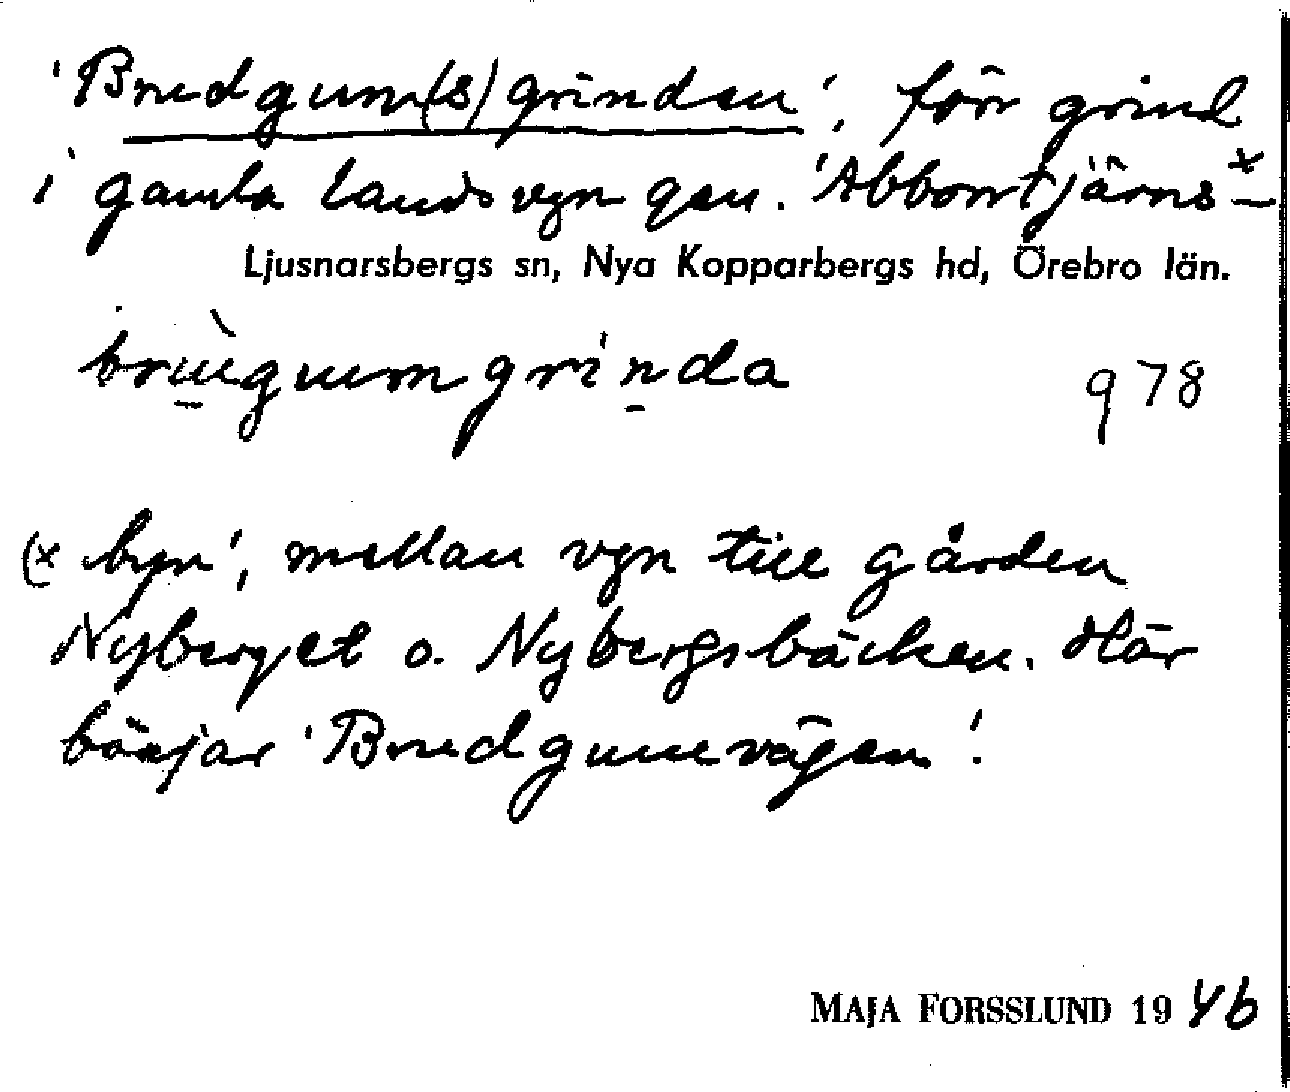 'Brudgum(s)grinden', förr grind
i gamla landsvgn gen. 'Abborrtjärns-x
Ljusnarsbergs sn, Nya Kopparbergs hd, Örebro län.
brùgumgrinda 978
(x byn', mellan vgn till gården
Nyberget o. Nybergsbäcken. Här
börjar 'Brudgumvägen'.
MAJA FORSSLUND 1946